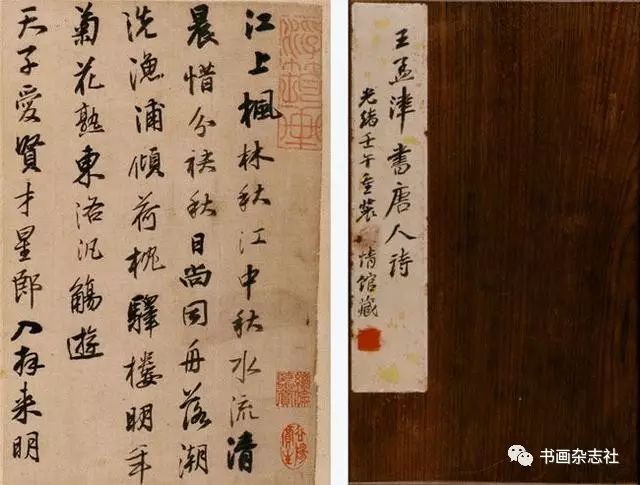 江上楓林秋江中秋水流清
晨惜分袂秋日尚同舟落潮
洗漁浦傾荷枕驛樓明年
菊花熟東洛汎觴遊
天子愛賢才星郎入拜来明
王孟津書唐人詩
光緒壬午重裝 情館藏
书画杂志社